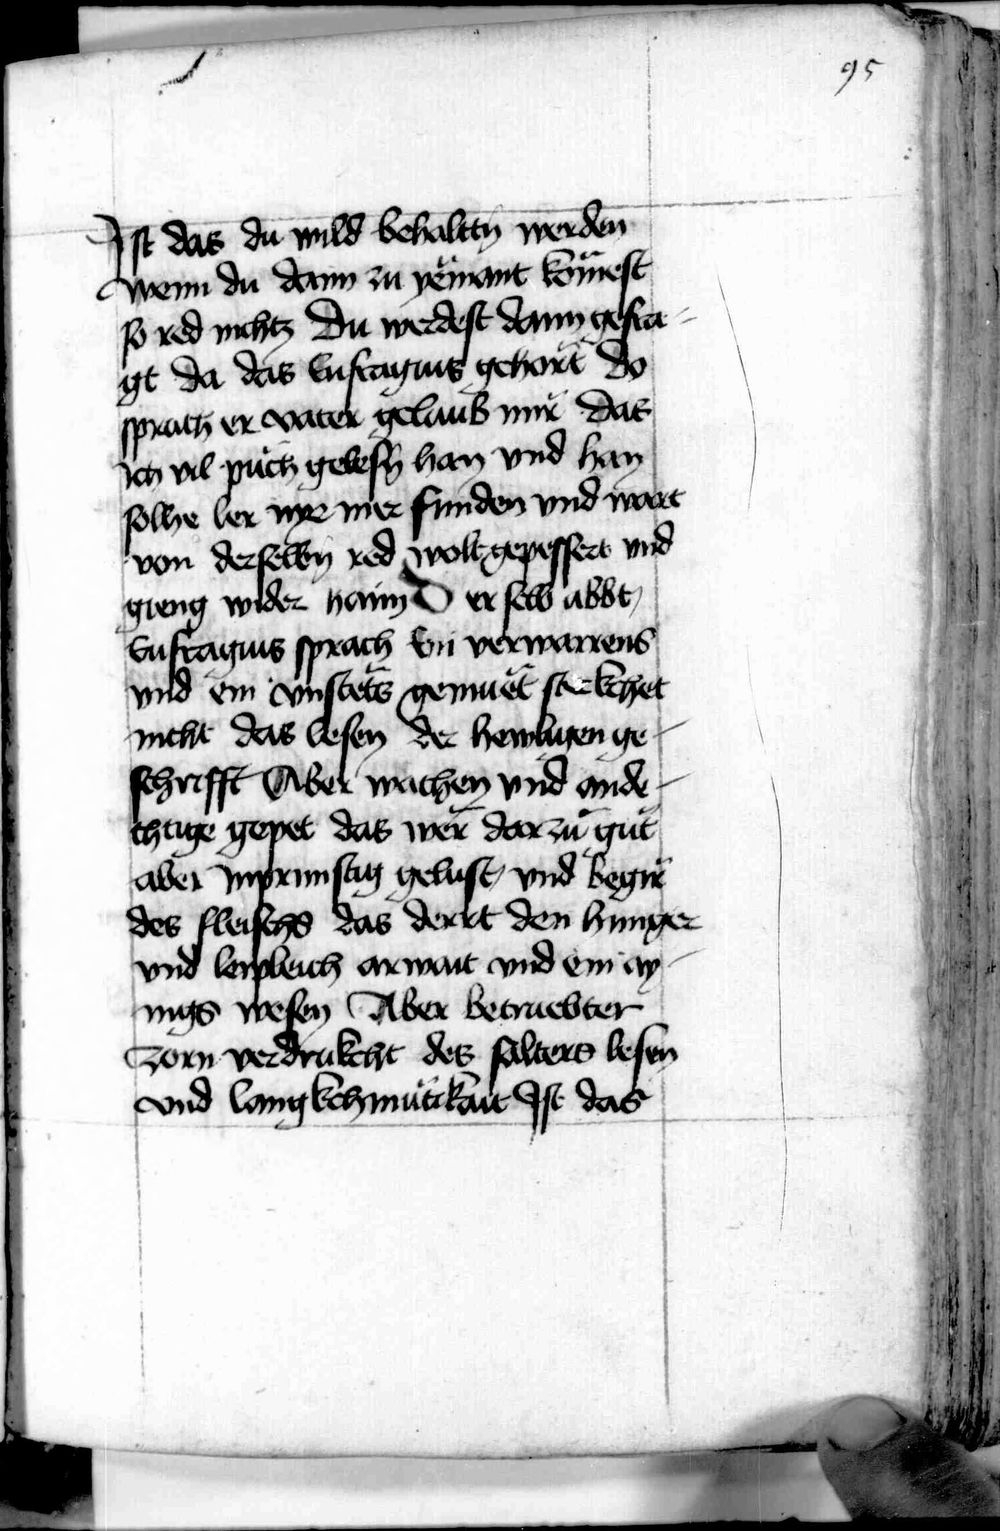 95
Ist das du wild behaltn̄ werden
wenn du dann zu yemant kömest
so red nichtz Du werdest dann gefra-
gt da das Eufragius gehört do
sprach er vater gelaub mir das
ich vil püch gelesn̄ han vnd han
solhe ler nye mer funden vnd wart
von derselbn̄ red wolt gepessert vnd
gieng wider haim Der selb abbt
Eufragius sprach Ein verwarrens
vnd ein vnstets gemuet sterkchet
nicht das lesen der hewligen ge-
schrifft Aber wachen vnd ande-
chtige gepet das wer darzü güt
aber inprunstig gelust vnd begir
des fleischs das derrt den hunger
vnd leipleich arwait vnd ein ay-
nigs wesen Aber betruebter
zorn verdrukcht des salters lesen
vnd langkchmütikait Ist das